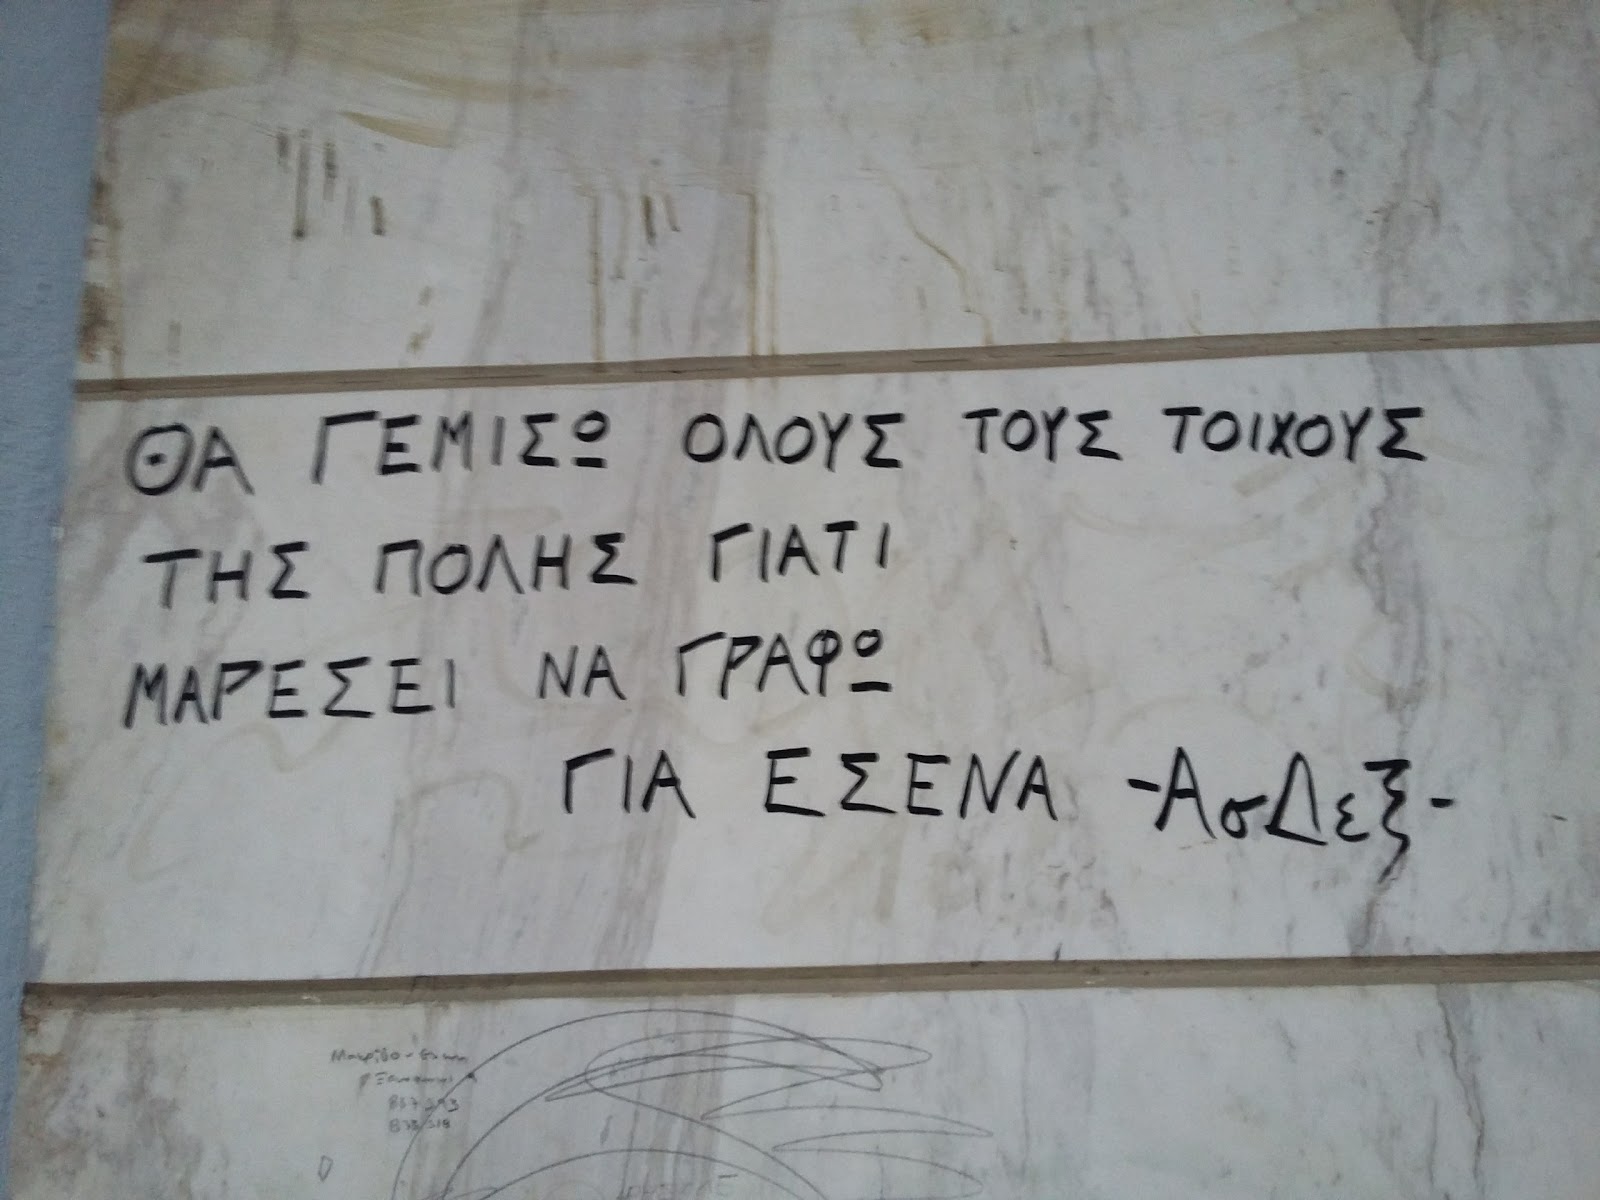 ΘΑ ΓΕΜΙΣΩ ΟΛΟΥΣ ΤΟΥΣ ΤΟΙΧΟΥΣ
ΤΗΣ ΠΟΛΗΣ ΓΙΑΤΙ
ΜΑΡΕΣΕΙ ΝΑ ΓΡΑΦΩ
ΓΙΑ ΕΣΕΝΑ -ΑσΔεξ-